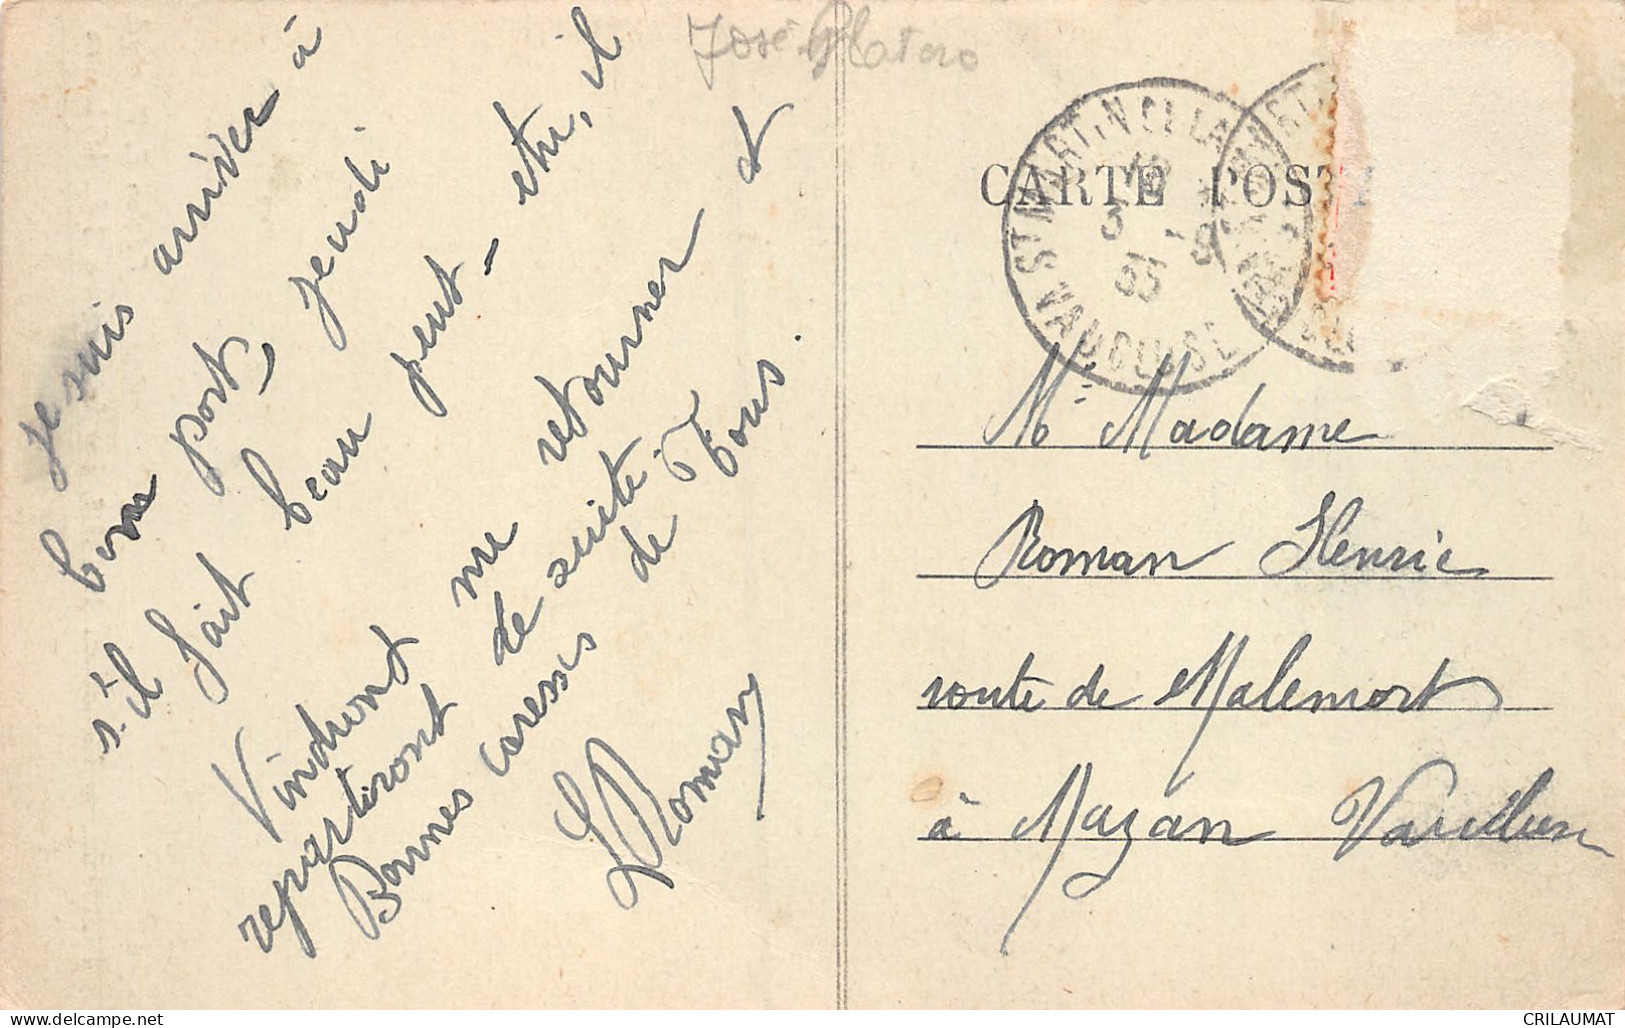 José Platero
Je suis arriver à
bon port, jeudi
s'il fait beau peut-etre, il
Vindront me retourner et
repartiront de suite.
Bonnes caresses de Tous.
L Roman
CARTE POST
ST MARTIN CASTILLON
3 -9
35
VAUCLUSE
Mr Madame
Roman Henrie
route de Malemort
à Mazan Vaucluse
CRILAUMAT